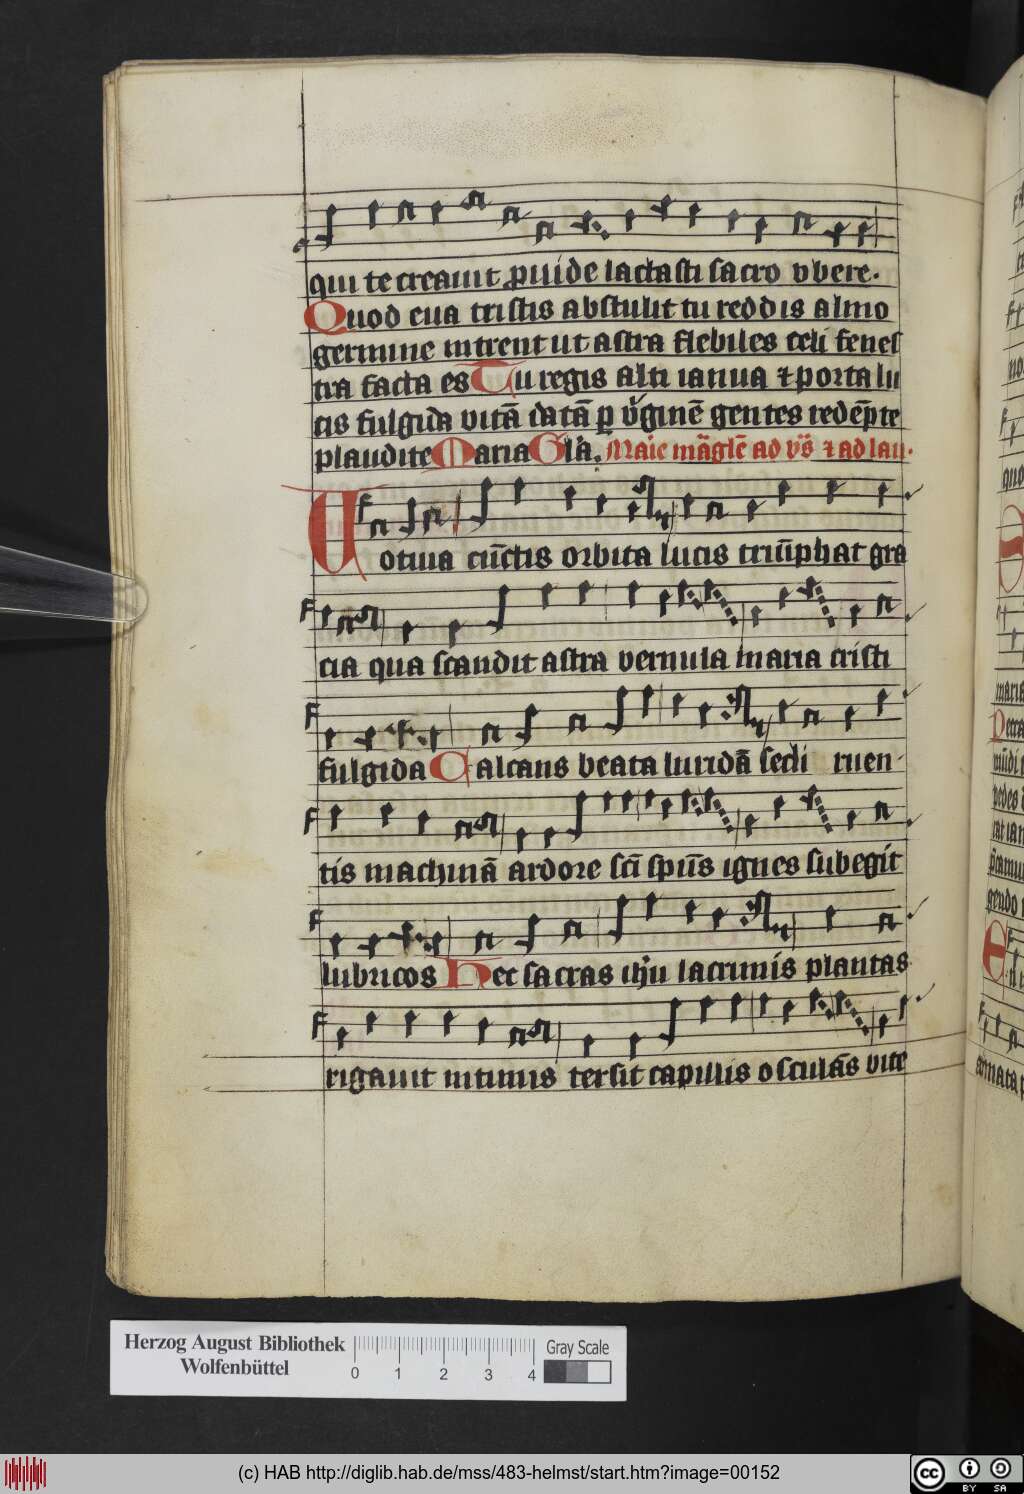 qui te creauit ꝓuide lactasti sacro vbere.
Quod eua tristis abstulit tu reddis almo
germine intrent ut astra flebiles celi fenes
tra facta es Tu regis alti ianua ⁊ porta lu
cis fulgida vitā datā ꝑ v̾ginē gentes redēpte
plaudite Maria Gl̄a.
Votiua cūctis orbita lucis triūphat gra
cia qua scandit astra vernula maria cristi
fulgida Calcans beata luridā sedi ruen
tis machinā ardore sc̄i sp̄us ignes subegit
lubricos Hec sacras ih̄u lacrimis plantas
rigauit intimis tersit capillis osculās vite
Herzog August Bibliothek
Wolfenbüttel
0 1 2 3 4
Gray Scale
(c) HAB http://diglib.hab.de/mss/483-helmst/start.htm?image=00152
cc BY SA